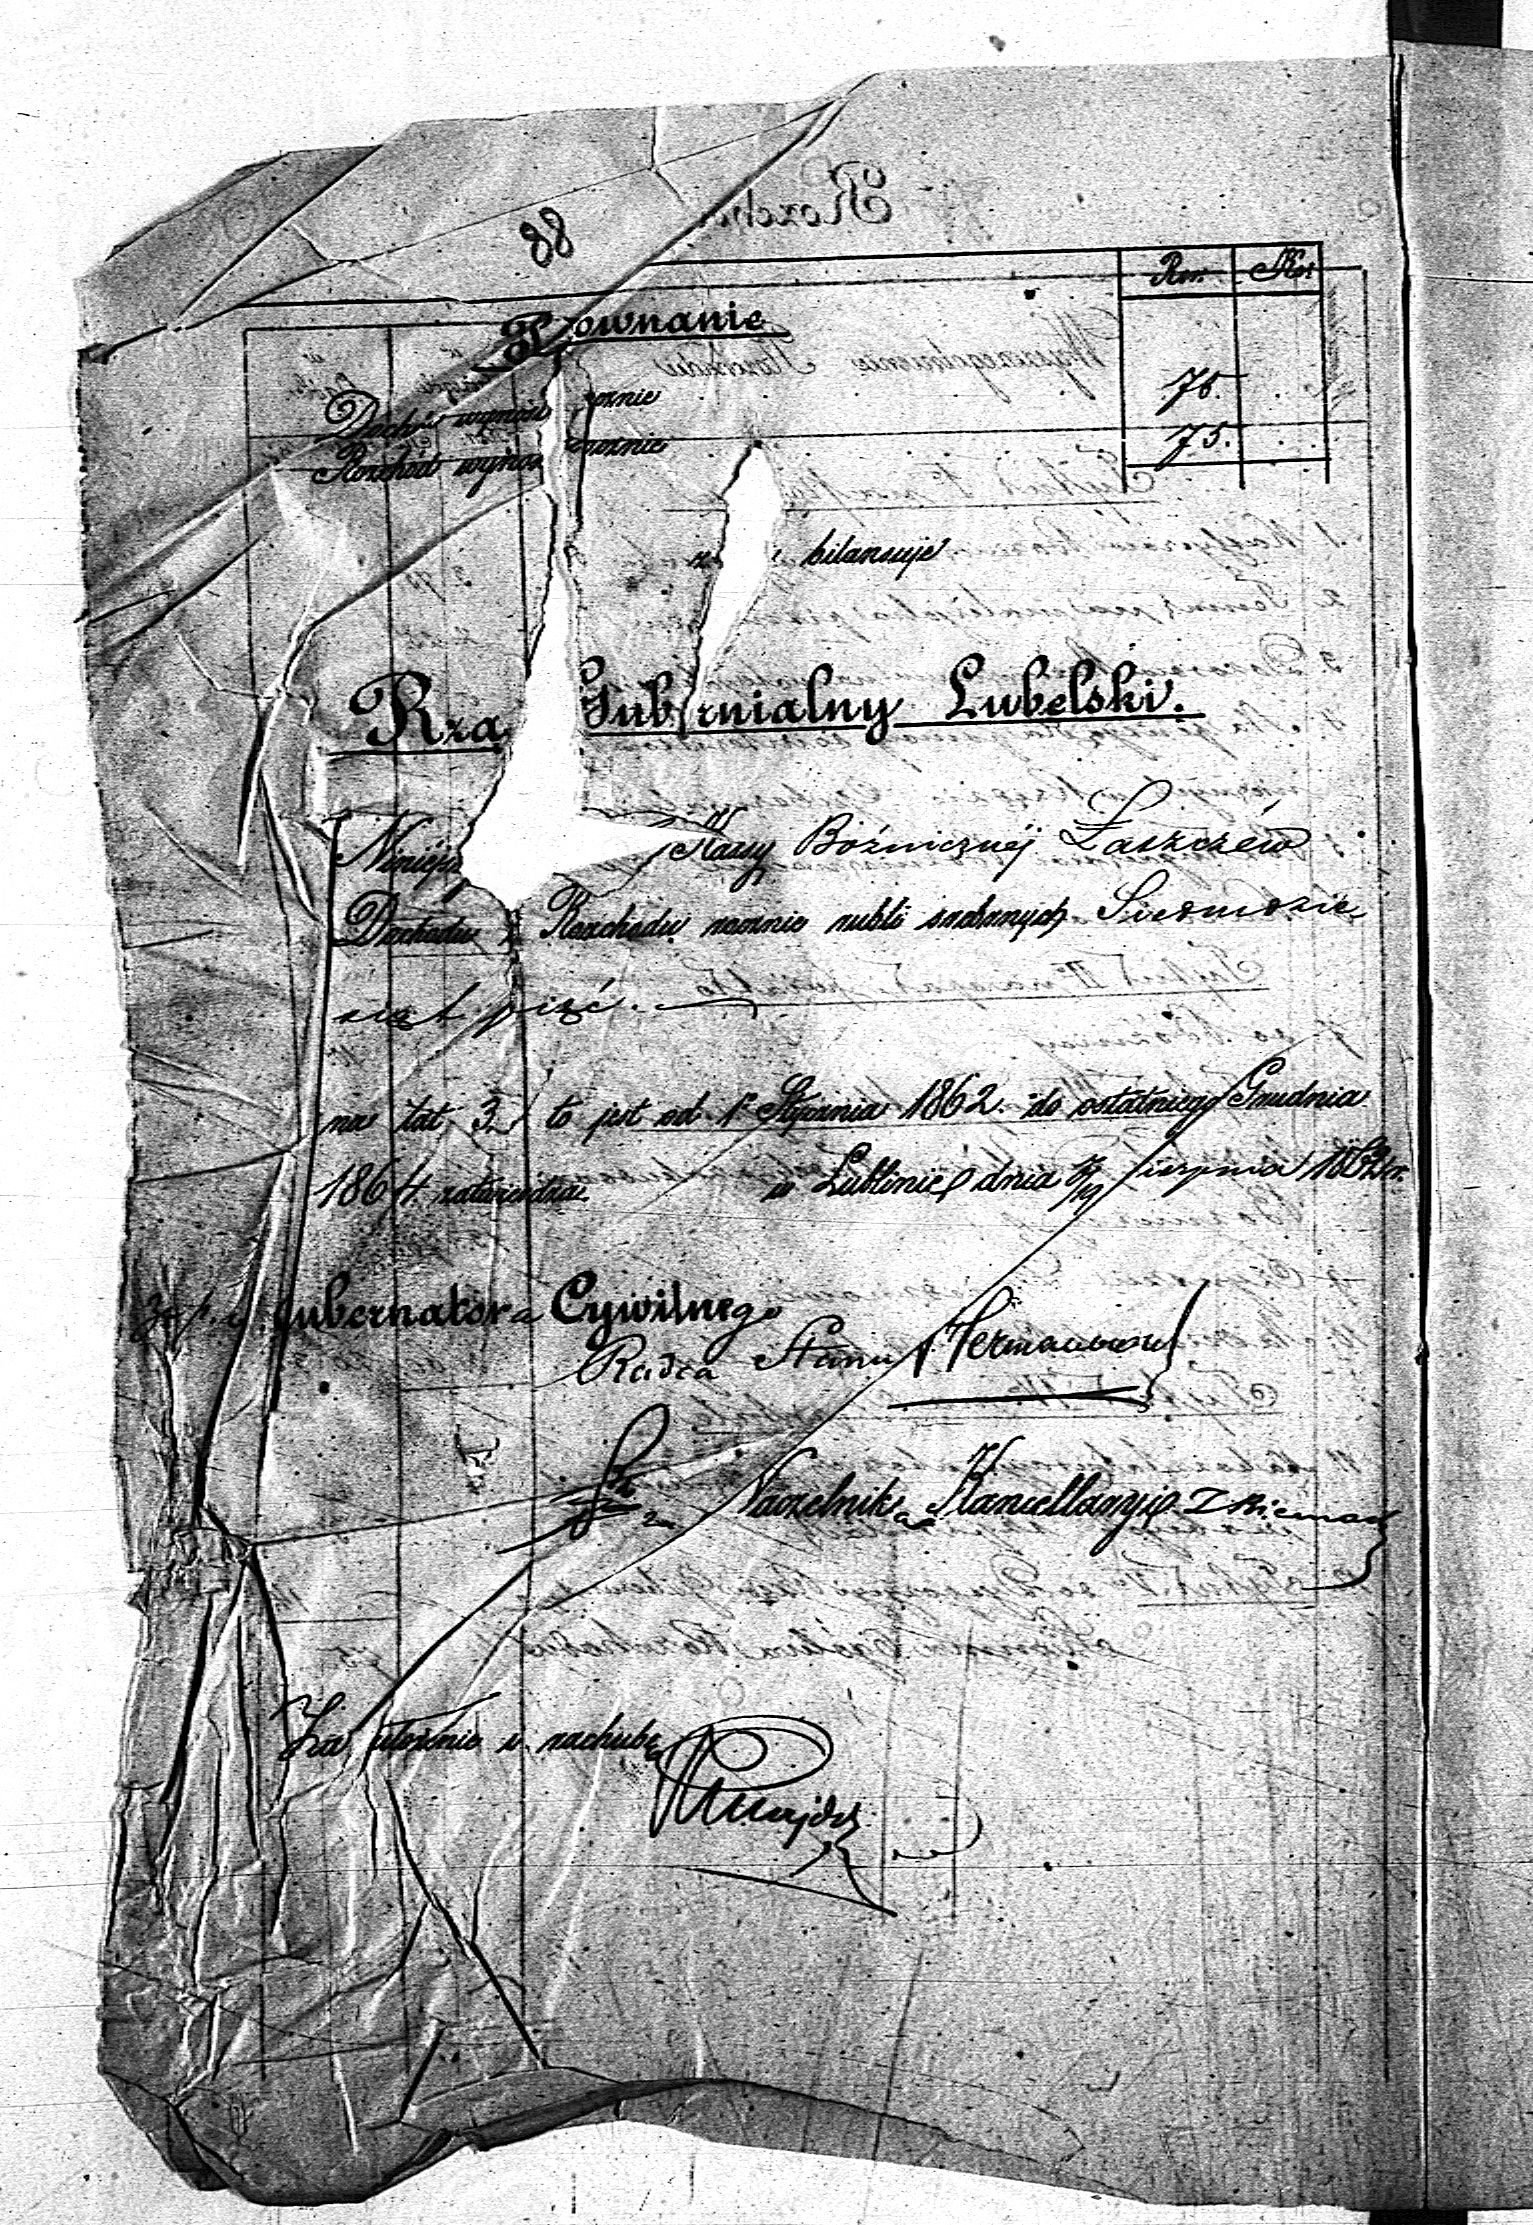 88
Rsr. Kop.
Porownanie
Dochód wynosi rocznie 75.
Rozchód wynosi rocznie 75.
bilansuje
Rzą Gubernialny Lubelski.
Niniejs Kassy Bóźnicznéj Łaszczów
Dochodu i Rozchodu rocznie rubli srebrnych Siedmdzie
siąt pięć.
na lat 3 to jest od 1 Stycznia 1862 do ostatniego Grudnia
1864 zatwierdza. w Lublinie dnia 7/19 Sierpnia 186 r.
Gubernatora Cywilnego
Radca Stanu
Naczelnik Kancellaryi
Za ułożenie i rachubę